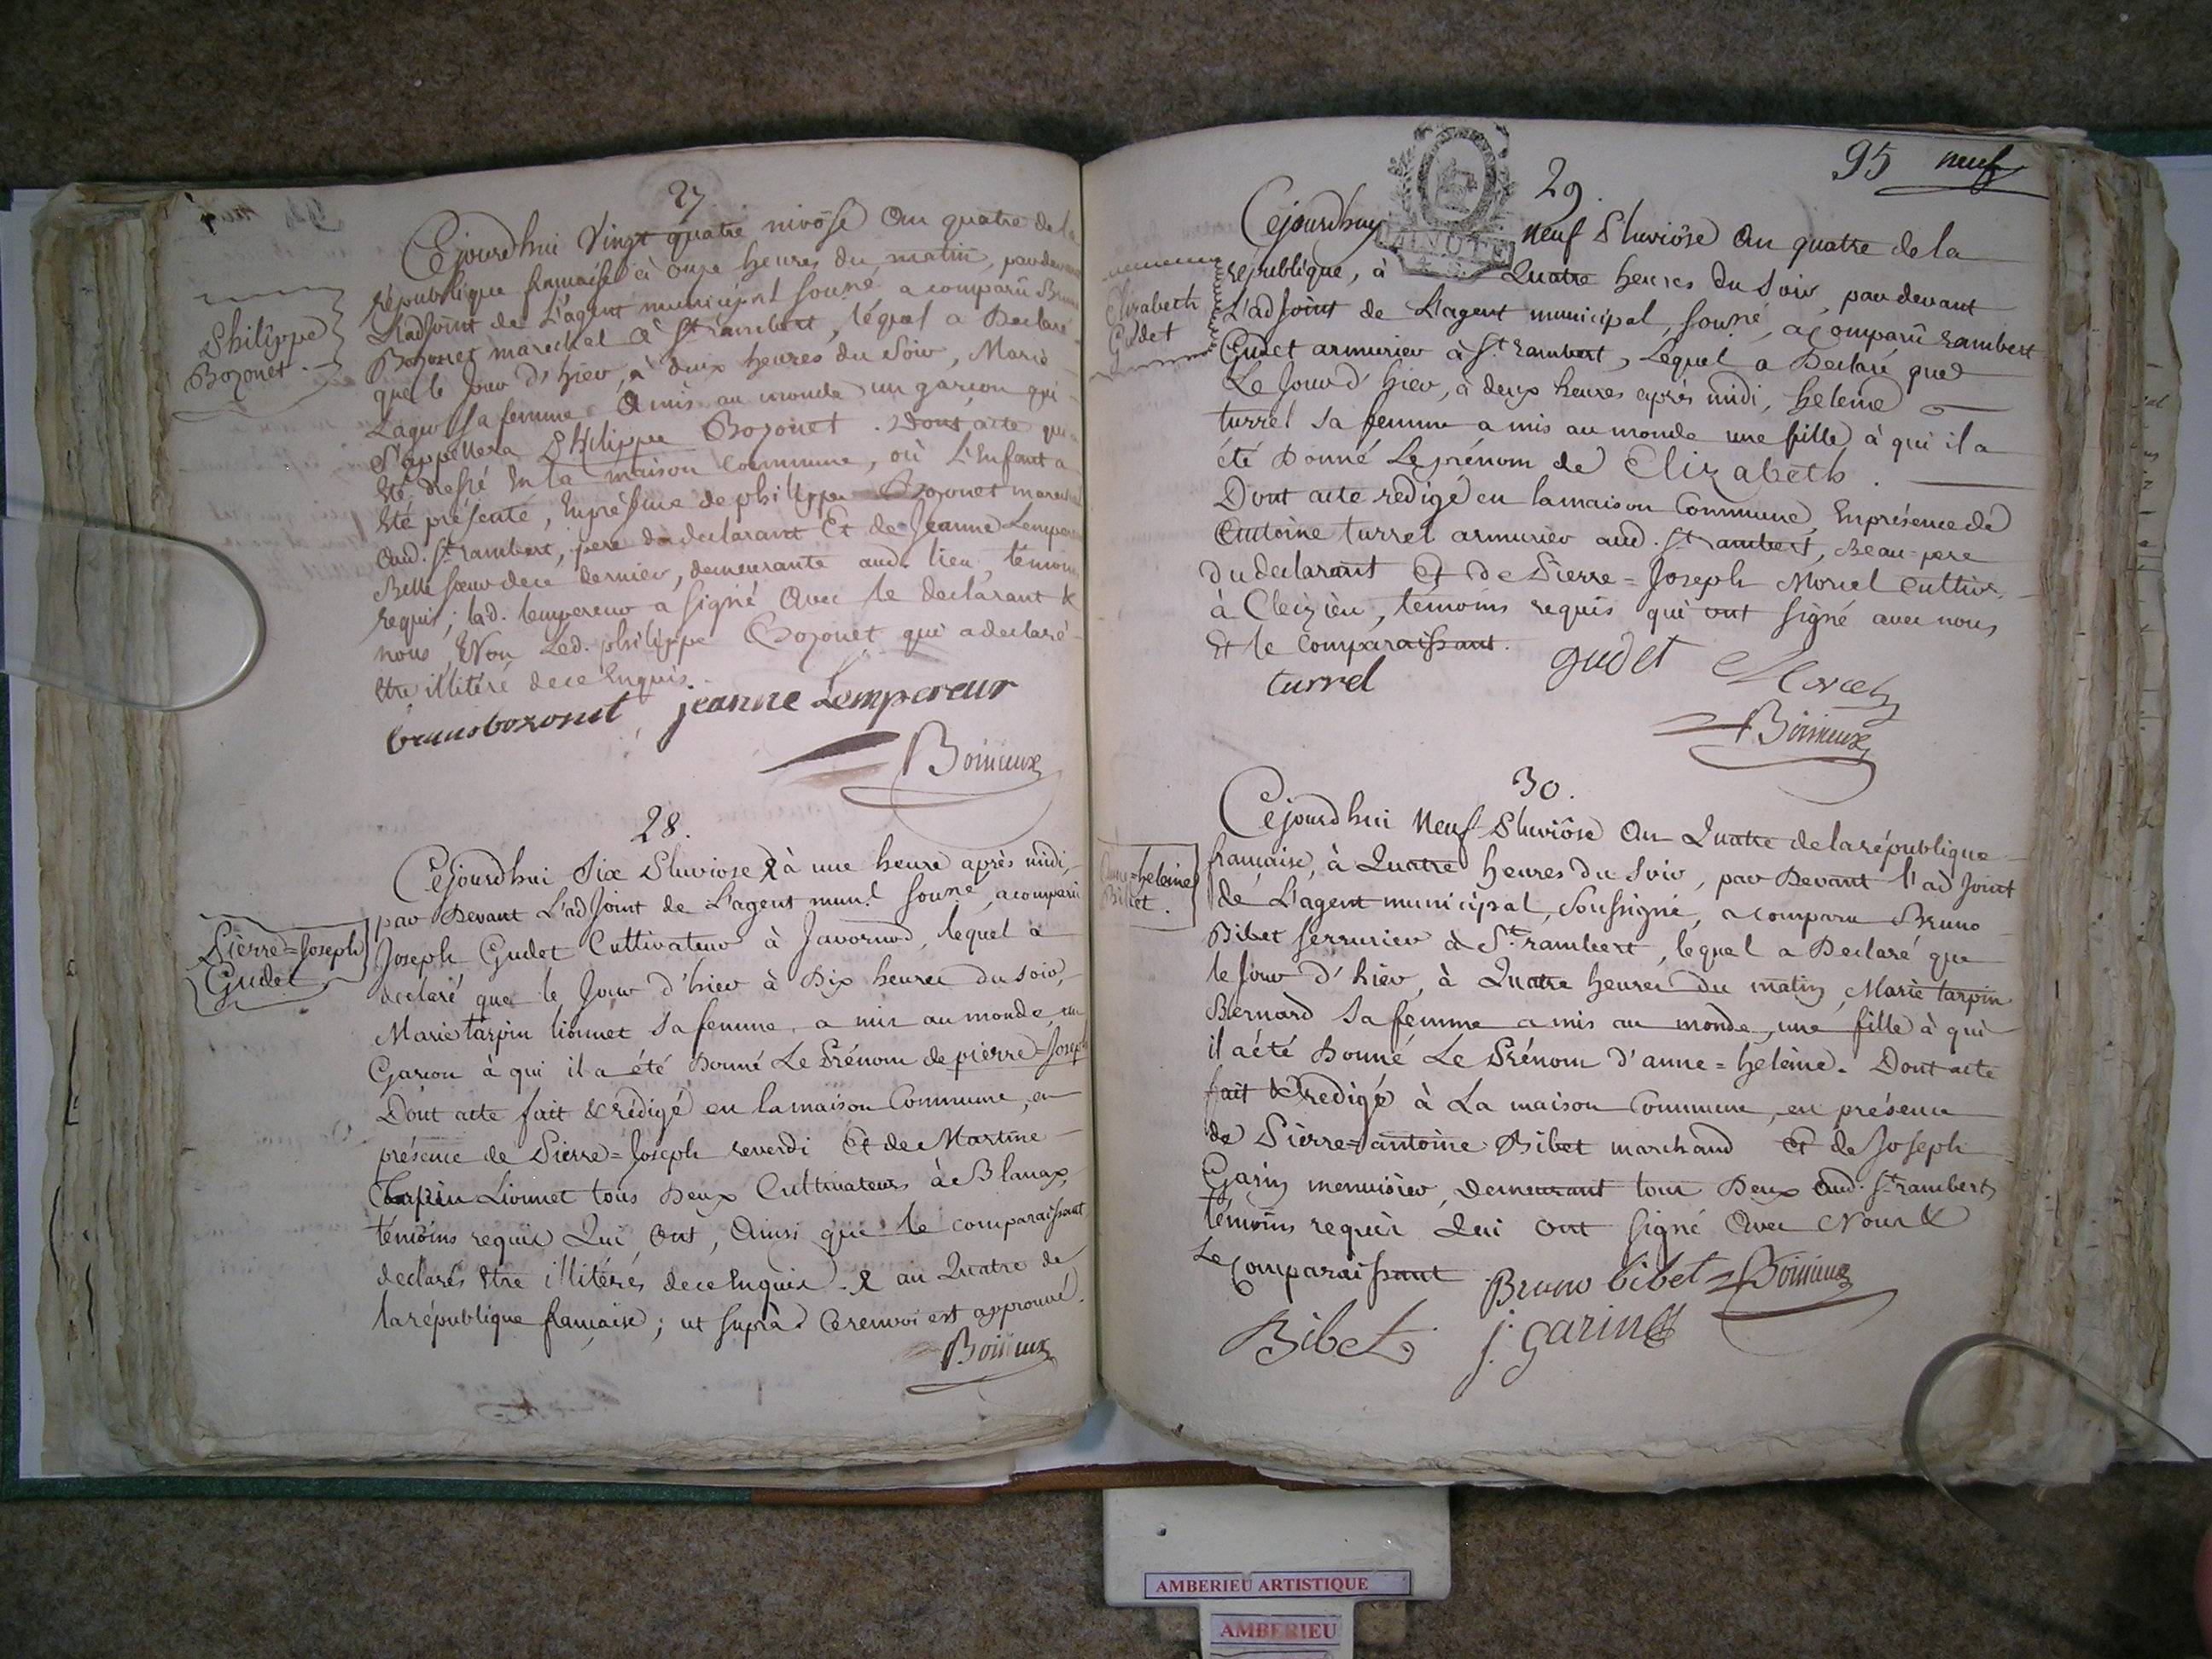 27.
Cejourd'hui Vingt quatre nivôse an quatre de la
république francaise à onze heures du matin, par devant
L'adjoint de L'agent municipal soussné, a comparû Bruno
Bozonet marechal à St rambert, lequel a Declaré
que le Jour d'hier, à deux heures du Soir, Marie
sa femme a mis au monde un garçon qui
S'appellera Philippe Bozonet. Dont acte qui a
été dressé en la maison commune, où L'enfant a
été présenté, en présence de philippe Bozonet marechal
aud. St rambert, pere du declarant Et de Jeanne Lempereur
Belle soeur de ce dernier, demeurante aud. lieu, témoins
requis; lad. lempereur a signé avec le declarant &
nous, Non Led. philippe Bozonet qui a declaré
être illitéré de ce enquis.
Philippe
Bozonet.
bruno bozonet jeanne Lempereur
28.
Cejourd'hui Six Pluviose & à une heure après midi,
par Devant L'adjoint de L'agent mun.l soussné, a comparû
Joseph Gudet Cultivateur à Javornod, lequel a
declaré que le Jour d'hier à Dix heures du soir,
Marie tarpin lionnet sa femme, a mis au monde un
Garcon à qui il a été Donné Le Prénom de pierre=Joseph
Dont acte fait & rédigé en la maison Commune, en
présence de Pierre=Joseph reverdi Et de Martine
tarpin Lionnet tous Deux Cultivateurs à Blanaz,
témoins requis Qui ont, Ainsi que le comparaissant
declarés être illitérés de ce enquis. & an Quatre de
la république francaise; ut suprà. Ce renvoi est approuvé.
Pierre=Joseph
Gudet
95 neuf
29.
Cejourdhuy Neuf Pluviôse an quatre de la
république, à Quatre heures du Soir, par devant
L'adjoint de L'agent municipal, soussné, a comparû rambert
Gudet armurier à St. rambert, Lequel a Declaré que
Le Jour d'hier, à deux heures après midi, helene
turrel sa femme a mis au monde une fille à qui il a
été Donné Le prénom de Elizabeth.
Dont acte redigé en la maison Commune, En présence de
Antoine turrel armurier aud. St. rambert, Beau=pere
du declarant Et de Pierre=Joseph Morcel cultivr.
à Cleizieu, témoins requis qui ont signé avec nous
Et le comparaissant.
Elizabeth
Gudet
turrel gudet Morcel
MINUTE
30.
Cejourdhui Neuf Pluviôse an Quatre de la république
francaise, à Quatre heures du Soir, par Devant l'adjoint
de L'agent municipal, soussigné, a comparu Bruno
Bibet serrurier à St. rambert, lequel a Declaré que
le Jour d'hier, à Quatre heures Du matin Marie tarpin
Bernard sa femme a mis au monde, une fille à qui
il a été Donné Le Prénom d'anne=heleine. Dont acte
fait & redigé à La maison Commune, en présence
de Pierre=antoine Bibet marchand Et de Joseph
Garin menuisier, demeurant tous Deux aud. St. rambert,
témoins requis Qui ont signé avec Nous &
Le comparaissant
anne=heleine
Bibet.
Bruno bibet
Bibet j. garin
AMBERIEU ARTISTIQUE
AMBERIEU